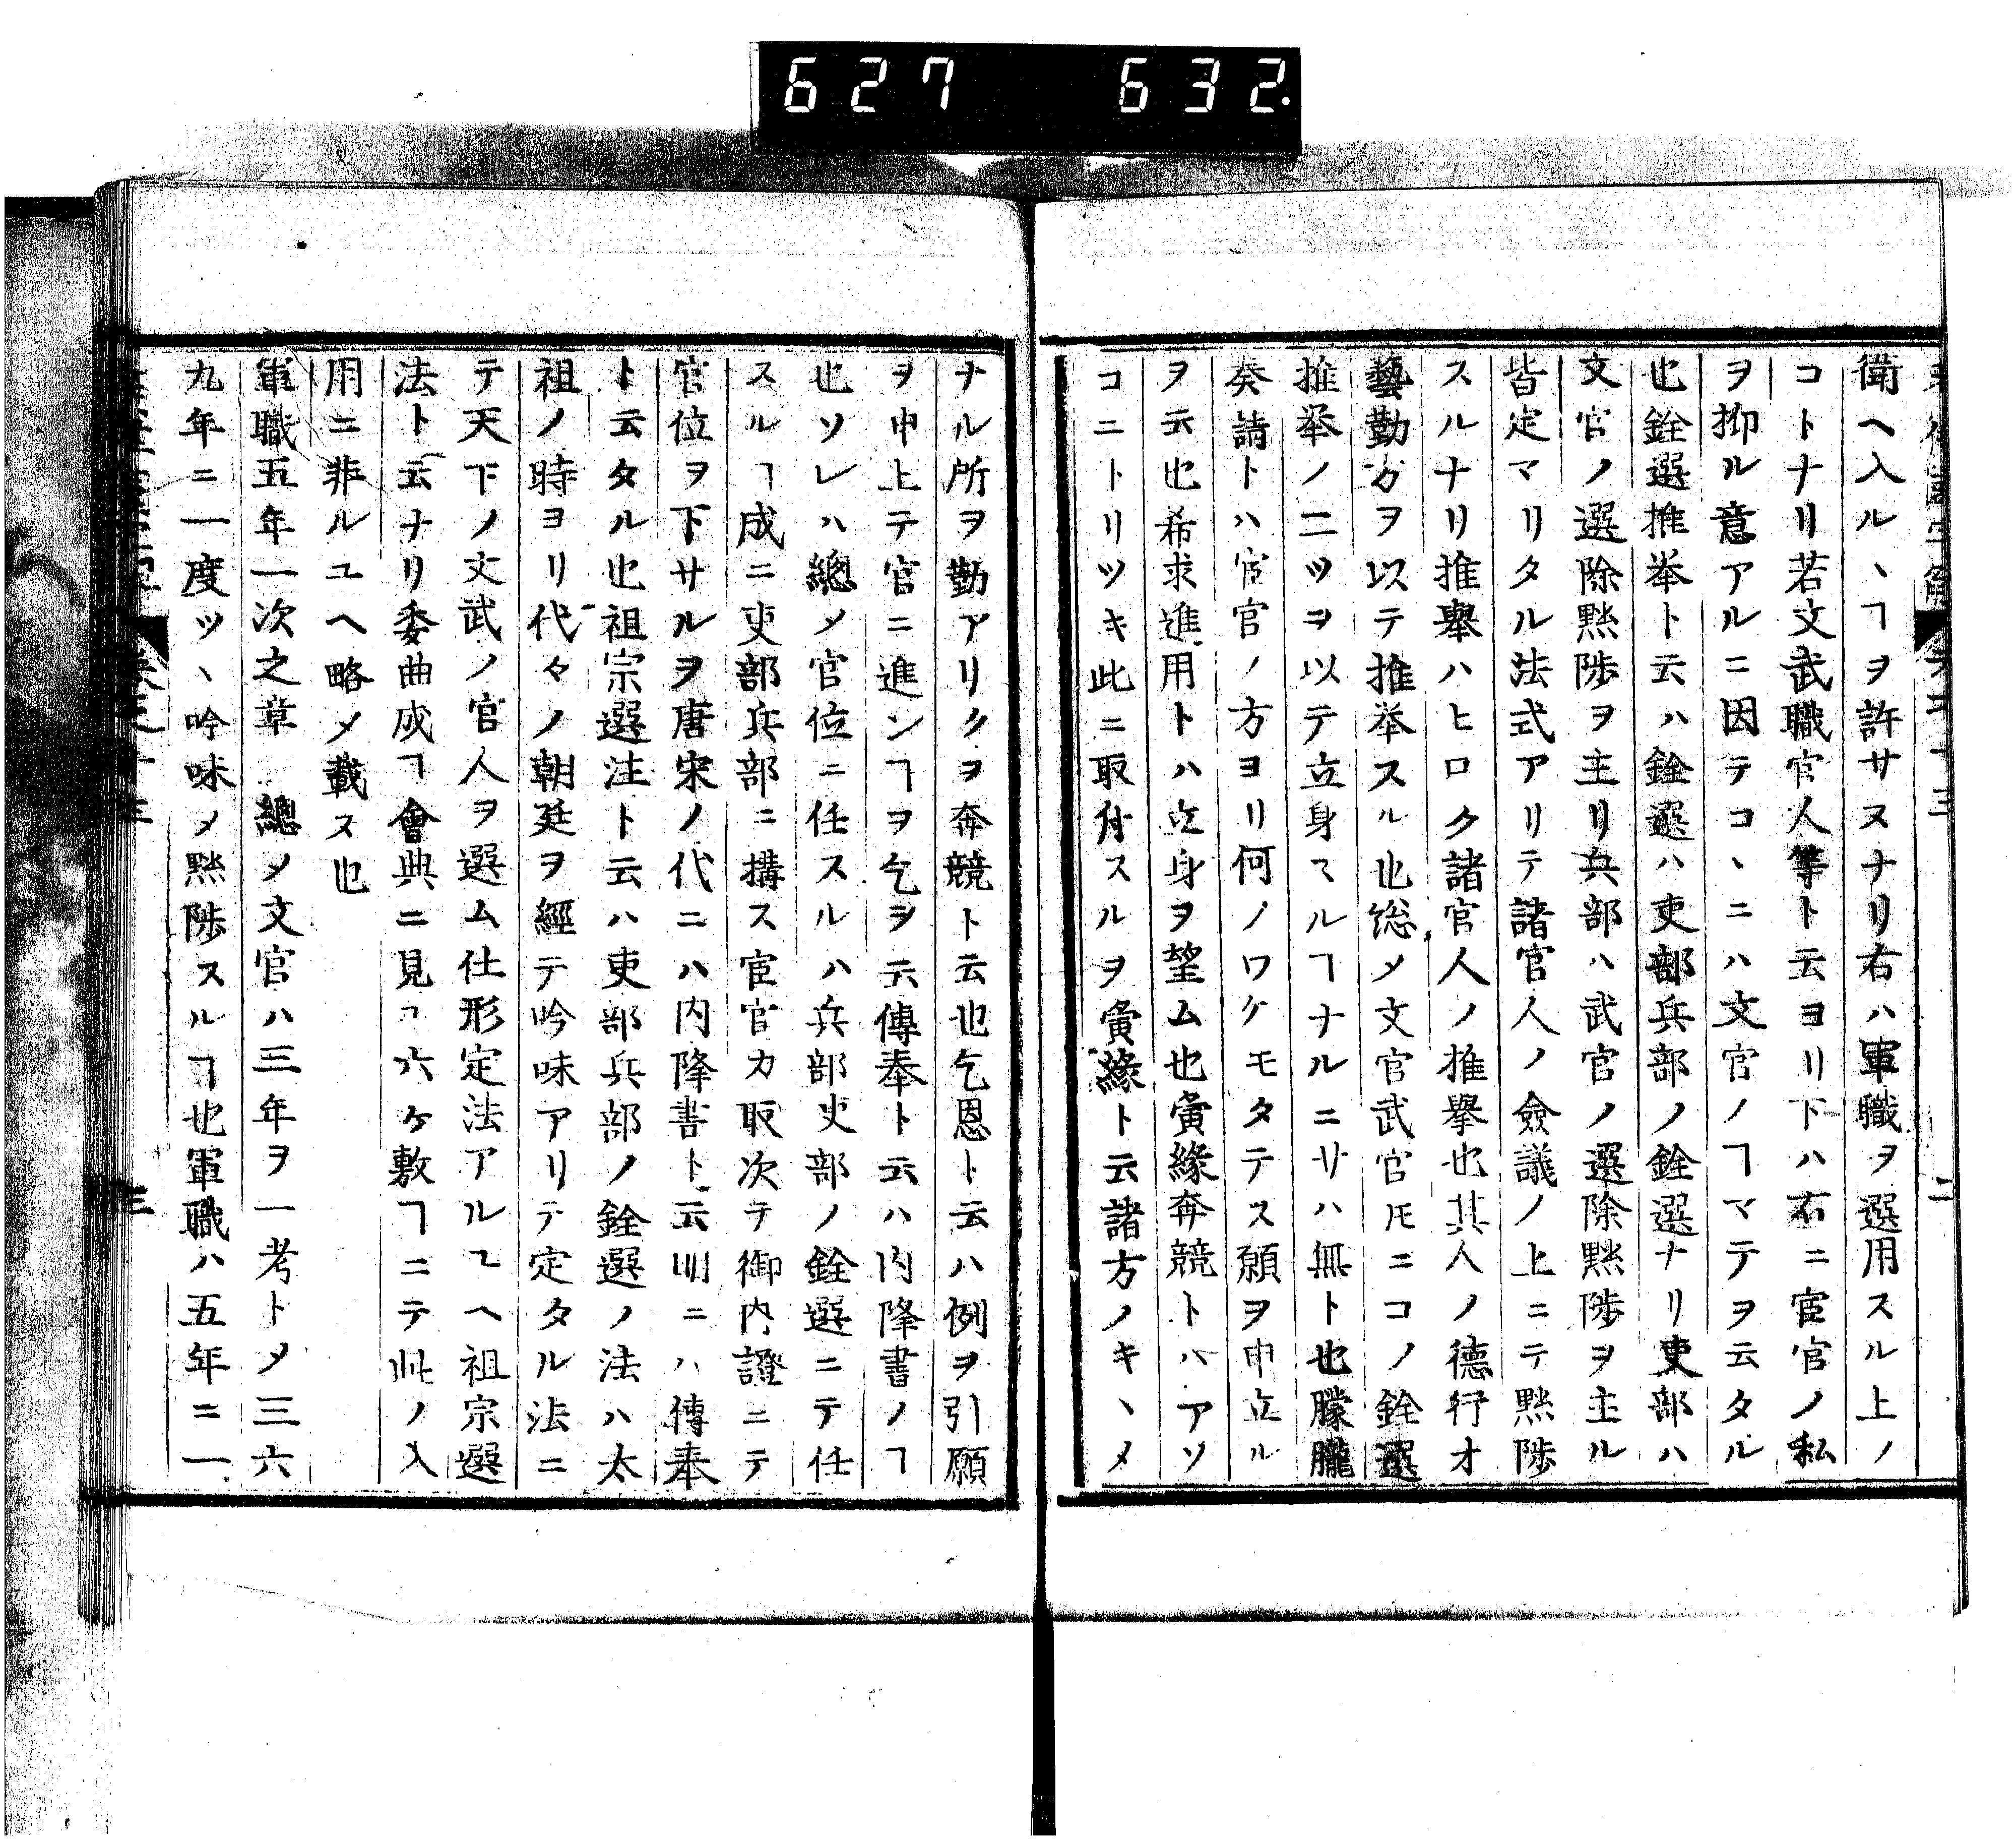 627 632.
衛ヘ入ルヽヿヲ許サスナリ右ハ軍職ヲ選用スル上ノ
コトナリ若文武職官人等ト云ヨリ下ハ右ニ宦官ノ私
ヲ抑ル意アルニ因テコヽニハ文官ノヿマテヲ云タル
也銓選推挙ト云ハ銓選ハ吏部兵部ノ銓選ナリ吏部ハ
文官ノ選除黙陟ヲ主リ兵部ハ武官ノ選除黙陟ヲ主ル
皆定マリタル法式アリテ諸官人ノ僉議ノ上ニテ黙陟
スルナリ推舉ハヒロク諸官人ノ推擧也其人ノ德行才
藝勤方ヲ以テ推挙スル也総メ文官武官𪜈ニコノ銓選
推挙ノ二ツヲ以テ立身スルヿナルニサハ無ト也朦朧
奏請トハ宦官ノ方ヨリ何ノワケモタテス願ヲ申立ル
ヲ云也希求進用トハ立身ヲ望ム也夤緣奔競トハアソ
コニトリツキ此ニ取付スルヲ夤緣ト云諸方ノキヽメ
ナル所ヲ勤アリクヲ奔競ト云也乞恩ト云ハ例ヲ引願
ヲ申上テ官ニ進ンヿヲ乞ヲ云傳奉ト云ハ内降書ノヿ
也ソレハ總メ官位ニ任スルハ兵部吏部ノ銓選ニテ任
スルヿ成ニ吏部兵部ニ搆ス宦官カ取次テ御内證ニテ
官位ヲ下サルヲ唐宋ノ代ニハ内降書ト云明ニハ傳奉
ト云タル也祖宗選注ト云ハ吏部兵部ノ銓選ノ法ハ太
祖ノ時ヨリ代々ノ朝廷ヲ經テ吟味アリテ定タル法ニ
テ天下ノ文武ノ官人ヲ選ム仕形定法アルユヘ祖宗選
法ト云ナリ委曲成ヿ會典ニ見ユ六ケ敷ヿニテ此ノ入
用ニ非ルユヘ略メ載ス也
軍職五年一次之章 總メ文官ハ三年ヲ一考トメ三六
九年ニ一度ツヽ吟味メ黙陟スルヿ也軍職ハ五年ニ一